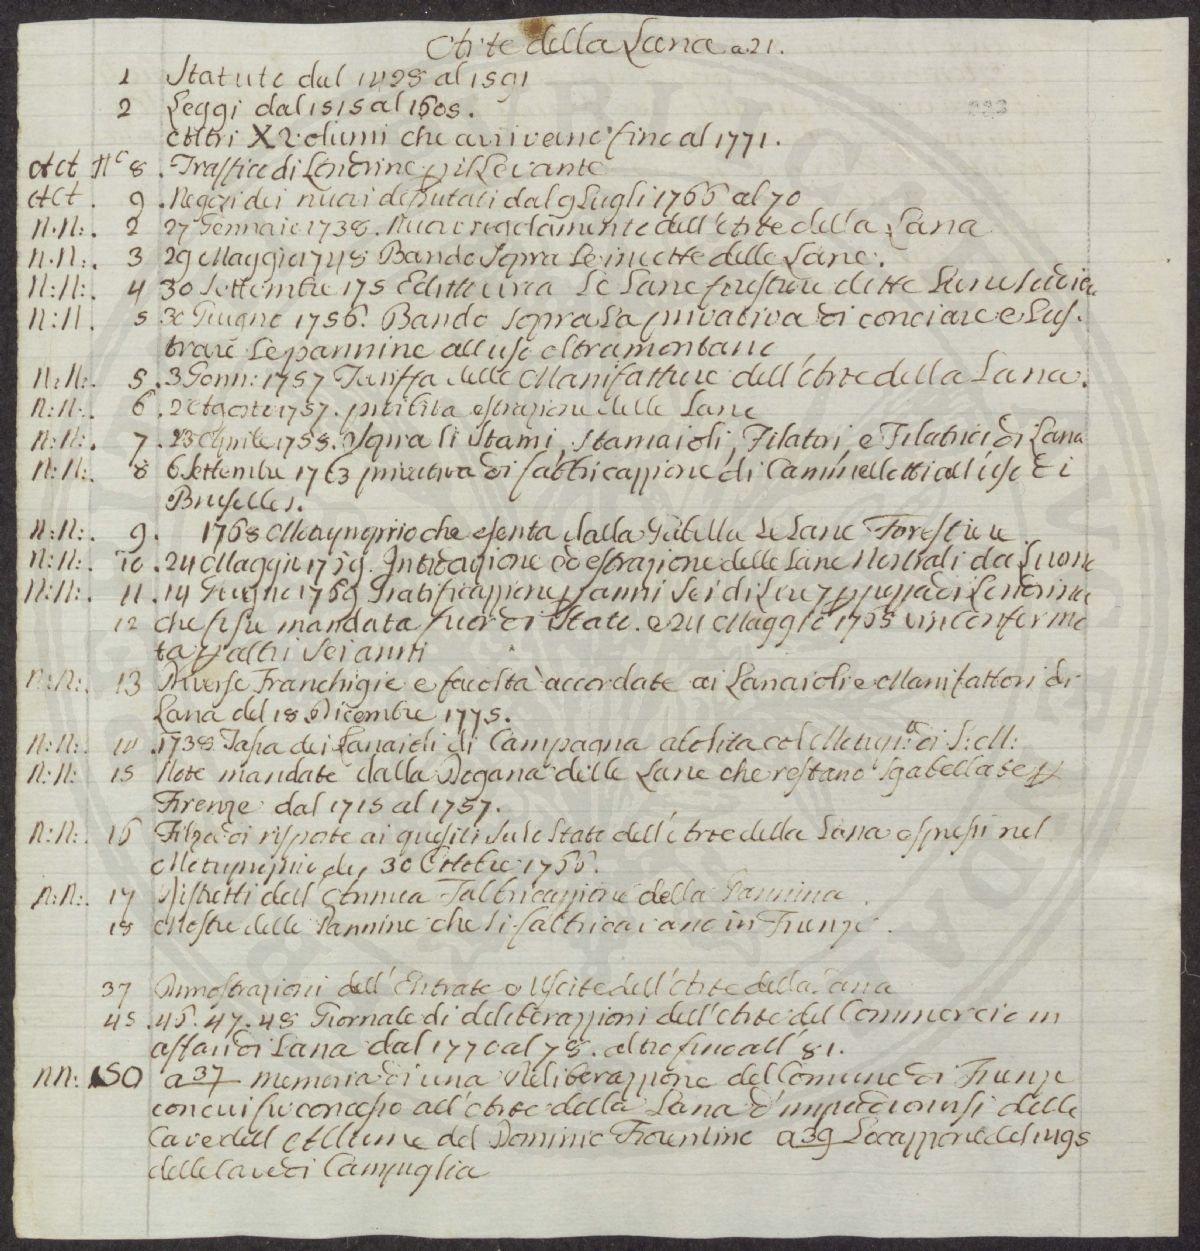 Arte della Lana a 21.
1 Statuto dal 1428 al 1591
2 Leggi dal 1515 al 1605.
Altri X Volumi che arrivano fino al 1771.
Act N° 8 . Traffico di Londrine p il Levante
Act . 9 . Negozi dei nuovi deputati dal 9 Luglio 1766 al 70
N.N:. 2 27 Gennaio 1738. Nuovo regolamento dell'Arte della Lana
N.N:. 3 29 Maggio 1748 Bando sopra le incette delle Lane.
N:N:. 4 30 Settembre 175 Editto circa le Lane forestiere dette
N:N. 5 30 Giugno 1756. Bando sopra la privativa di conciare e Lus-
trare le pannine all'uso oltramontano
N:N:. 5 . 3 Genn: 1757 Tariffa delle Manifatture dell'Arte della Lana.
N:N:. 6 . 2 Agosto 1757. proibita estrazione delle Lane
N:N:. 7 . 23 Aprile 1758. Sopra li Stami, Stamaioli, Filatori, e Filatrici di Lana
N:N:. 8 6 Settembre 1763 privativa di fabbricazzione di Cammellotti all'uso di
Bruselles.
N:N:. 9. 1768 Motuproprio che esenta dalla Gabella le Lane Forestiere
N:N:. 10 . 24 Maggio 1759. Introduzione ed estrazione delle Lane Nostrali da
N:N:. 11 . 14 Giugno 1769 Gratificazzione p anni sei di Lire 7 p pezza di Londrina
12 che si sia mandata fuor di Stato. e 24 Maggio 1765 vien conferma
ta p altri sei anni
N:N:. 13 Diverse Franchigie e facoltà accordate ai Lanaioli e Manifattori di
Lana del 18 Dicembre 1775.
N:N:. 14 . 1738 Tassa dei Lanaioli di Campagna abolita col Motup.° di S:M:
N:N: 15 Note mandate dalla Dogana delle Lane che restano sgabellate p
Firenze dal 1715 al 1757.
N:N:. 16 Filza di risposte ai quesiti su lo Stato dell'Arte della Lana espressi nel
Motuproprio de 30 Ottobre 1766.
N:N:. 17 Ristretti dell'Annua Fabbricazzione della Pannina.
18 Mostre delle Pannine che si fabbricavano in Firenze.
37 Dimostrazioni dell'Entrate e Uscite dell'Arte della Lana
45 . 46. 47. 48 Giornale di deliberazzioni dell'Arte del Commercio in
affari di Lana dal 1770 al 78. altro fino all' 81.
NN: 50 a 37 memoria di una Deliberazzione del Comune di Firenze
con cui fu concesso all'Arte della Lana d'impadronirsi delle
Cave dell'Allume del Dominio Fiorentino a 39 Locazzione del 1495
delle Cave di Campiglia